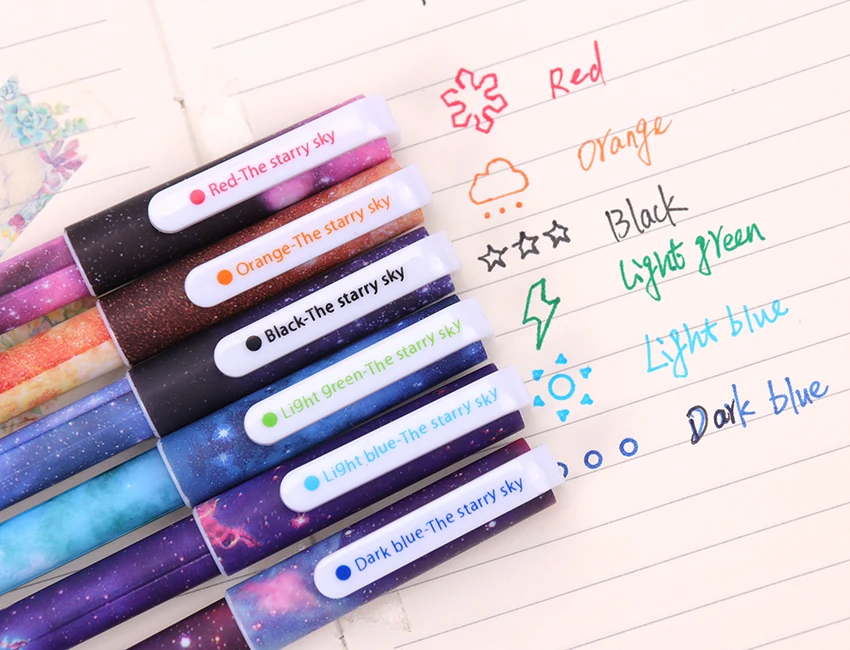 Red-The starry sky
Orange-The starry sky
Black-The starry sky
Light green-The starry sky
Light blue-The starry sky
Dark blue-The starry sky
Red
Orange
Black
Light green
Light blue
Dark blue